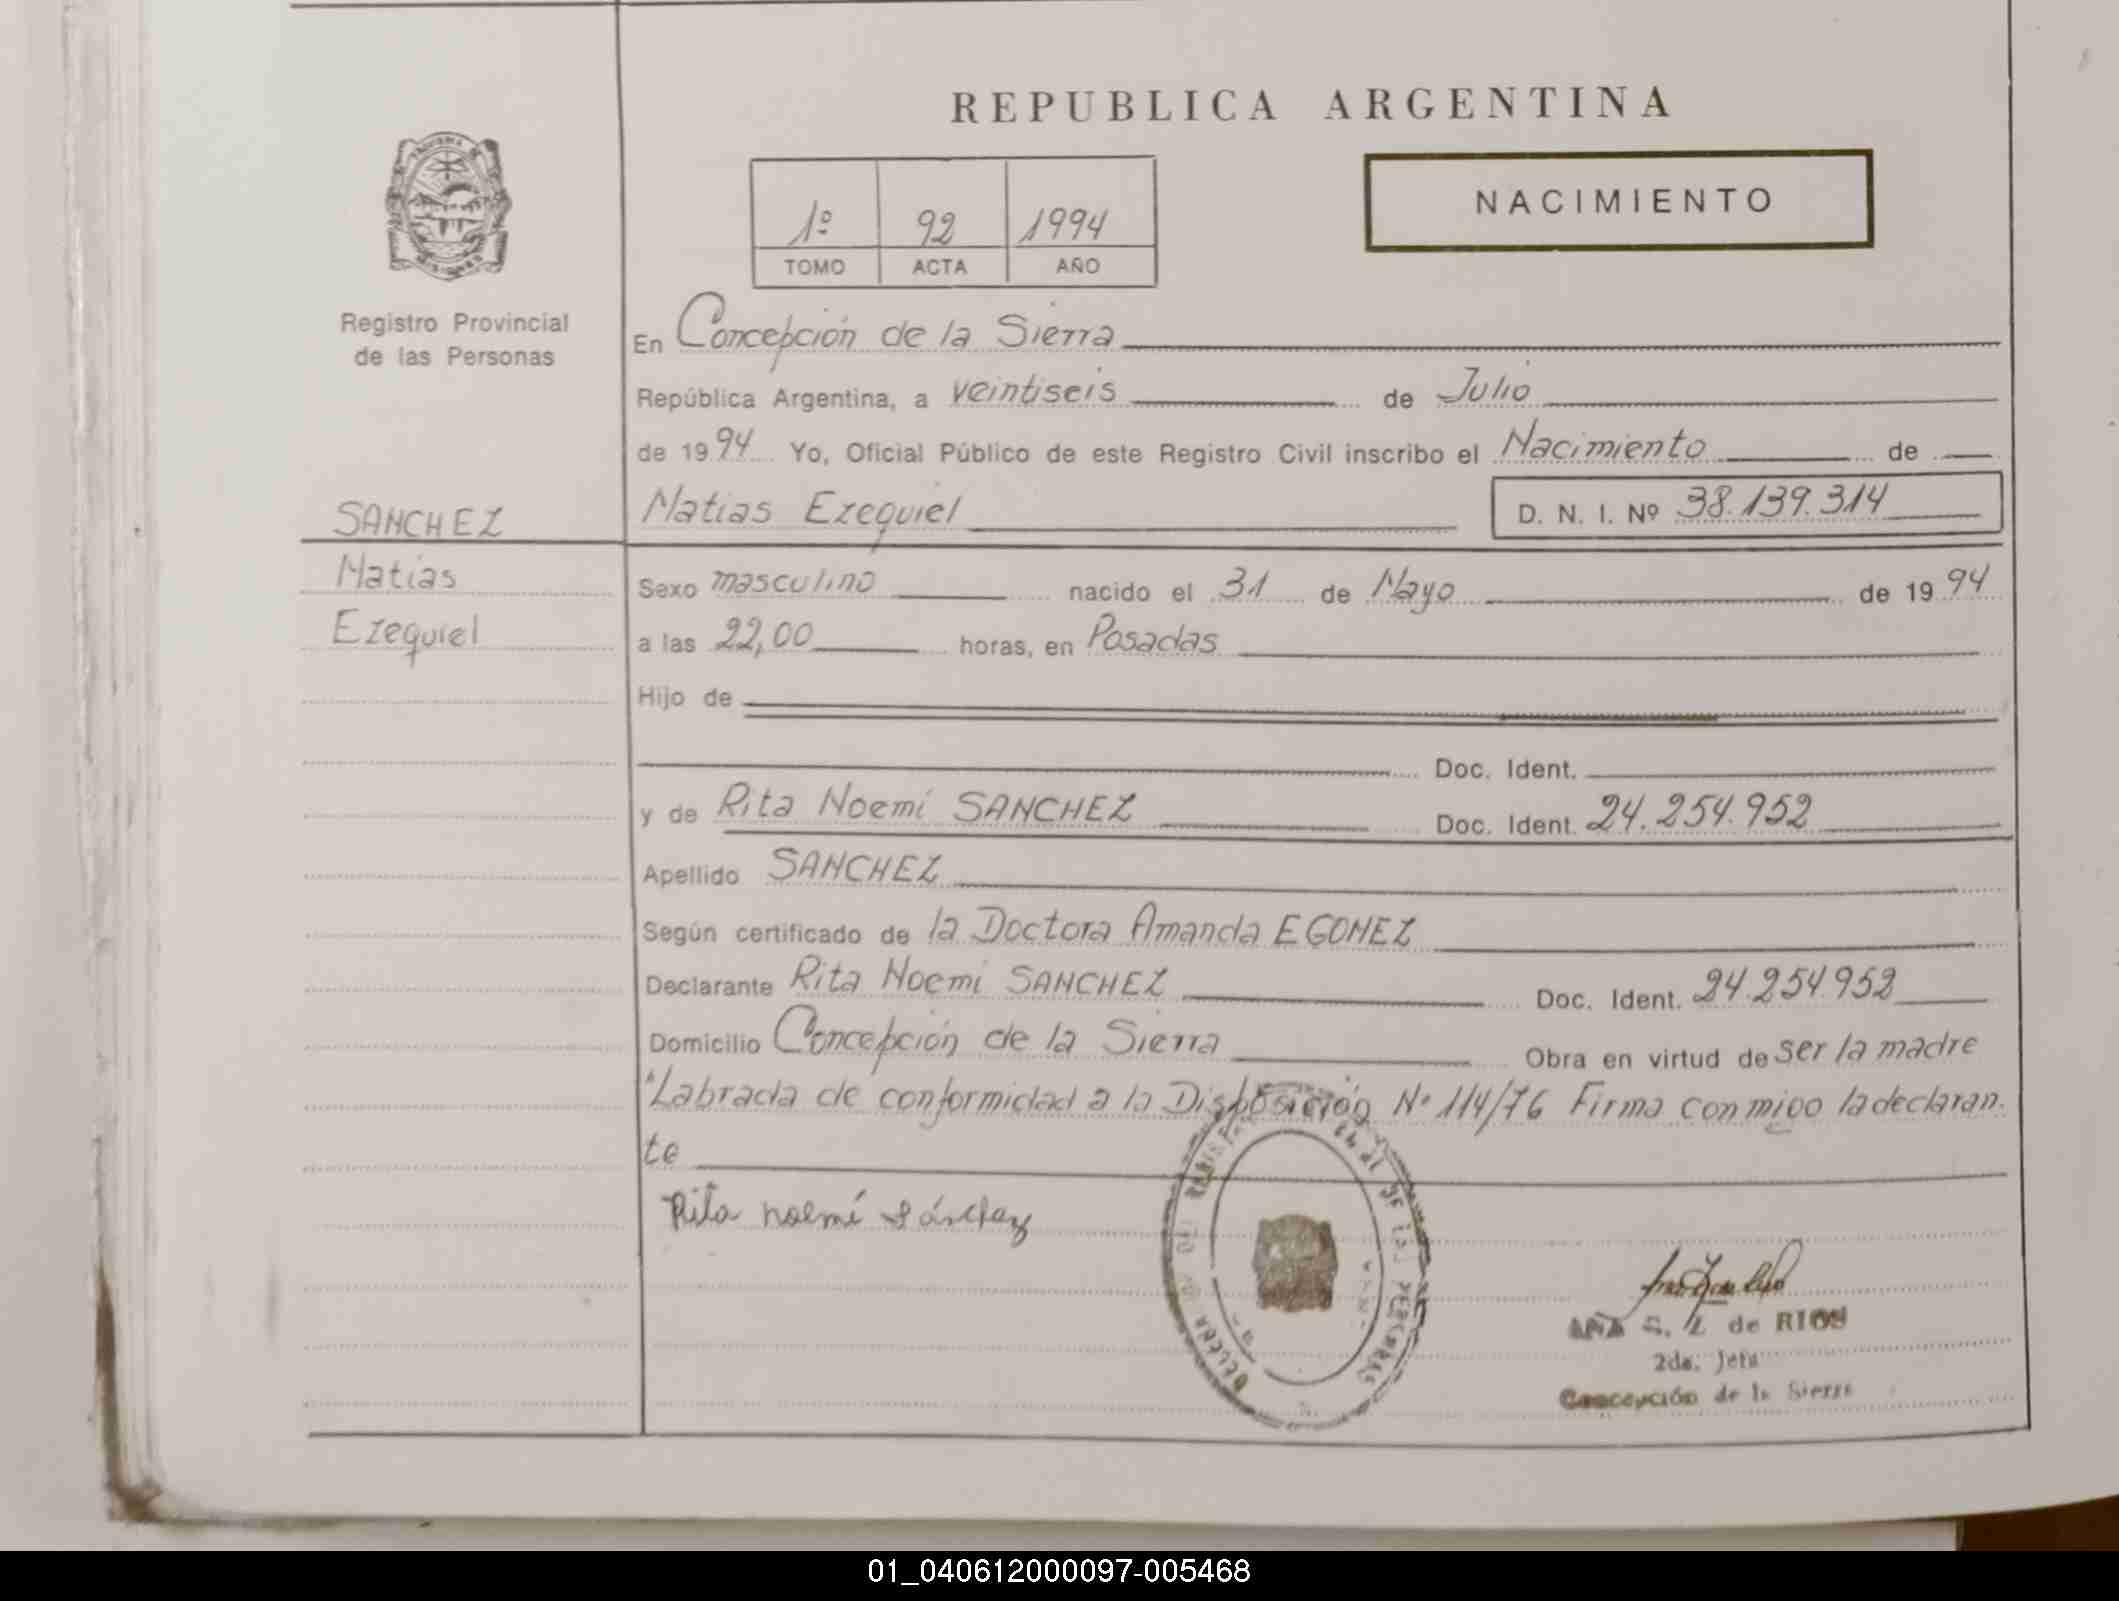 REPUBLICA ARGENTINA
NACIMIENTO
1º 92 1994
TOMO ACTA AÑO
Registro Provincial
de las Personas
En Concepción de la Sierra
República Argentina, a veintiseis de Julio
de 1994 Yo, Oficial Público de este Registro Civil inscribo el Nacimiento de
SANCHEZ
Matias Ezequiel D. N. I. Nº 38.139.314
Matias
Sexo masculino nacido el 31 de Mayo de 1994
Ezequiel
a las 22,00 horas, en Posadas
Hijo de
Doc. Ident.
y de Rita Noemi SANCHEZ Doc. Ident. 24.254.952
Apellido SANCHEZ
Según certificado de la Doctora Amanda E GOMEZ
Declarante Rita Noemi SANCHEZ Doc. Ident. 24.254.952
Domicilio Concepción de la Sierra Obra en virtud de ser la madre
"Labrada de conformidad a la Disposición Nº 114/76 Firma conmigo la declaran.
te
Rita noemí Sánchez
ANA S. Z de RIOS
2da. Jefa
Concepción de la Sierra
01_040612000097-005468